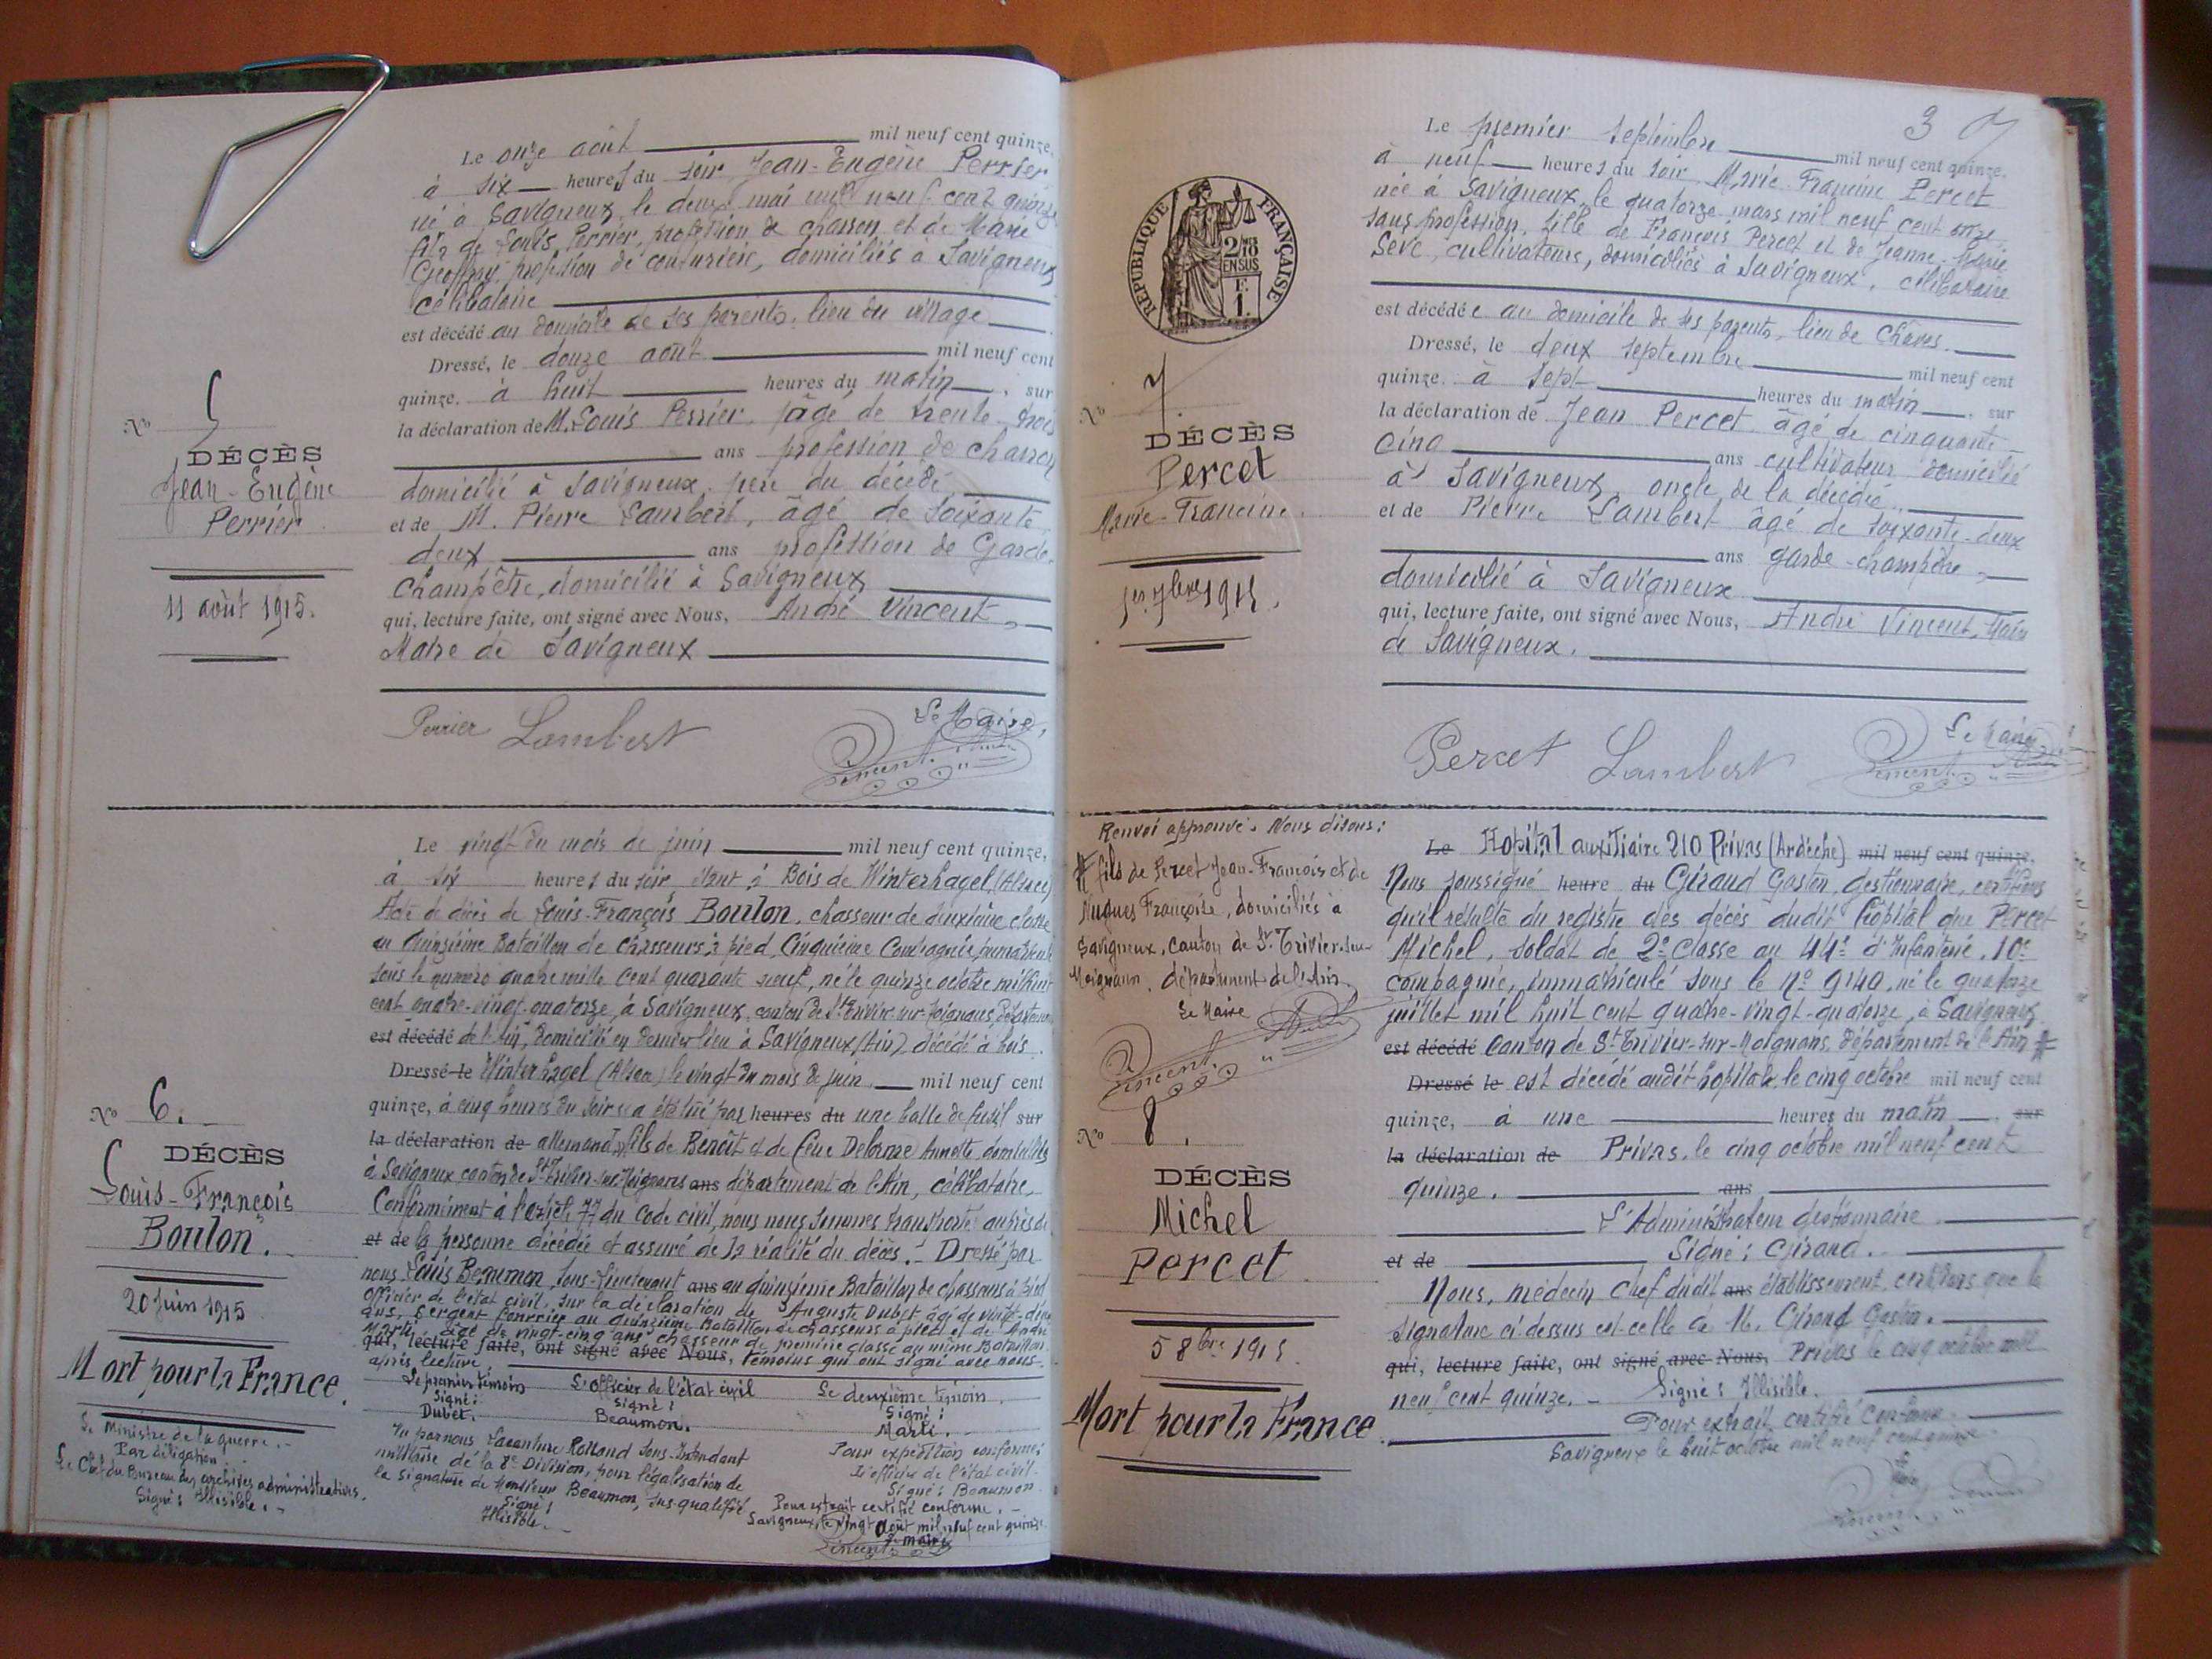 Le onze août mil neuf cent quinze,
à six heures du soir Jean-Eugène Perrier
né à Savigneux le deux mai mil neuf cent quinze
fils de Louis Perrier, profession de charron et de Marie
profession de couturière, domiciliés à Savigneux
célibataire
est décédé au domicile de ses parents, lieu du village
Dressé, le douze août mil neuf cent
quinze, à huit heures du matin, sur
la déclaration de M. Louis Perrier, âgé de trente trois
ans profession de charron
domicilié à Savigneux, père du décédé
et de M. Pierre Lambert, âgé de soixante
deux ans profession de Garde
Champêtre, domicilié à Savigneux
qui, lecture faite, ont signé avec Nous, André Vincent,
Maire de Savigneux
Perrier Lambert Le Maire,
Vincent
No 5
DÉCÈS
Jean-Eugène
Perrier
11 août 1915.
Le vingt du mois de juin mil neuf cent quinze,
à six heures du soir étant à Bois de Winterhagel (Alsace)
Acte de décès de Louis-François Boulon, chasseur de deuxième classe
au Quinzième Bataillon de chasseurs à pied, Cinquième Compagnie, immatriculé
sous le numéro quatre mille cent quarante neuf, né le quinze octobre mil huit
cent quatre-vingt-quatorze, à Savigneux, canton de St Trivier-sur-Moignans, Département
est décédé de l'Ain, domicilié en dernier lieu à Savigneux (Ain), décédé à bois
Dressé le Winterhagel (Alsace) le vingt du mois de juin mil neuf cent
quinze, à cinq heures du soir, a été tué par heures du une balle de fusil sur
la déclaration de allemand, fils de Benoît et de feue Delorme Annette, domiciliés
à Savigneux canton de St-Trivier-sur-Moignans ans département de l'Ain, célibataire.
Conformément à l'article 77 du code civil, nous nous sommes transporté auprès de
et de la personne décédée et assuré de la réalité du décès. - Dressé par
nous Louis Beaumon, Sous-Lieutenant ans au quinzième Bataillon de chasseurs à pied
officier de l'état civil, sur la déclaration de Auguste Dubet, âgé de vingt-
ans, sergent fourrier au quinzième Bataillon de chasseurs à pied et de André
Marti, âgé de vingt-cinq ans chasseur de première classe au même Bataillon
qui, lecture faite, ont signé avec Nous, témoins qui ont signé avec nous
après lecture.
Le premier témoin L'officier de l'état civil Le deuxième témoin
Signé : Signé : Signé :
Dubet. Beaumon. Marti.
Vu par nous Rolland Sous-Intendant
militaire de la 8e Division, pour légalisation de
la signature de Monsieur Beaumon, sus-qualifié
Signé :
Illisible.
Pour expédition conforme;
L'officier de l'état civil
Signé : Beaumon.
Pour extrait certifié conforme.
Savigneux, le vingt août mil neuf cent quinze
Le maire
Vincent
No 6.
DÉCÈS
Louis-François
Boulon.
20 Juin 1915
Mort pour la France.
Le Ministre de la guerre.
Par délégation
Le Chef du Bureau des archives administratives.
Signé : Illisible.
3
Le premier septembre mil neuf cent quinze,
à neuf heures du soir Marie-Francine Percet
née à Savigneux, le quatorze mars mil neuf cent onze
sans profession, fille de François Percet et de Jeanne-Marie
Sève, cultivateurs, domiciliés à Savigneux, célibataire
est décédée au domicile de ses parents, lieu de Chânes.
Dressé, le deux septembre mil neuf cent
quinze, à sept heures du matin, sur
la déclaration de Jean Percet âgé de cinquante-
cinq ans cultivateur domicilié
à Savigneux oncle de la décédée
et de Pierre Lambert âgé de soixante-deux
ans garde-champêtre,
domicilié à Savigneux
qui, lecture faite, ont signé avec Nous, André Vincent, Maire
de Savigneux.
Percet Lambert Le Maire
Vincent
RÉPUBLIQUE FRANÇAISE
2/10 EN SUS
F.
1.
No 7.
DÉCÈS
Percet
Marie-Francine.
1er 7bre 1915.
Renvoi approuvé. Nous disons :
# fils de Percet Jean-François et de
Nugues Françoise, domiciliés à
Savigneux, canton de St-Trivier-sur-
Moignans, département de l'Ain.
Le Maire
Vincent
No 8.
DÉCÈS
Michel
Percet
5 8bre 1915.
Mort pour la France
Le Hopital auxiliaire 210 Privas (Ardèche) mil neuf cent quinze,
Nous soussigné heure du Giraud Gaston, gestionnaire, certifions
qu'il résulte du registre des décès dudit hôpital que Percet
Michel, soldat de 2e classe au 44e d'Infanterie, 10e
compagnie, immatriculé sous le no 9140, né le quatorze
juillet mil huit cent quatre-vingt-quatorze, à Savigneux
est décédé Canton de St Trivier-sur-Moignans, département de l'Ain #
Dressé le est décédé audit hopital, le cinq octobre mil neuf cent
quinze, à une heures du matin, sur
la déclaration de Privas, le cinq octobre mil neuf cent
quinze. ans
L'Administrateur gestionnaire
et de Signé : Giraud.
Nous, médecin chef dudit ans établissement, certifions que la
signature ci-dessus est celle de M. Giraud Gaston.
qui, lecture faite, ont signé avec Nous, Privas le cinq octobre mil
neuf cent quinze. - Signé : Illisible.
Pour extrait certifié conforme.
Savigneux le huit octobre mil neuf cent quinze
Vincent